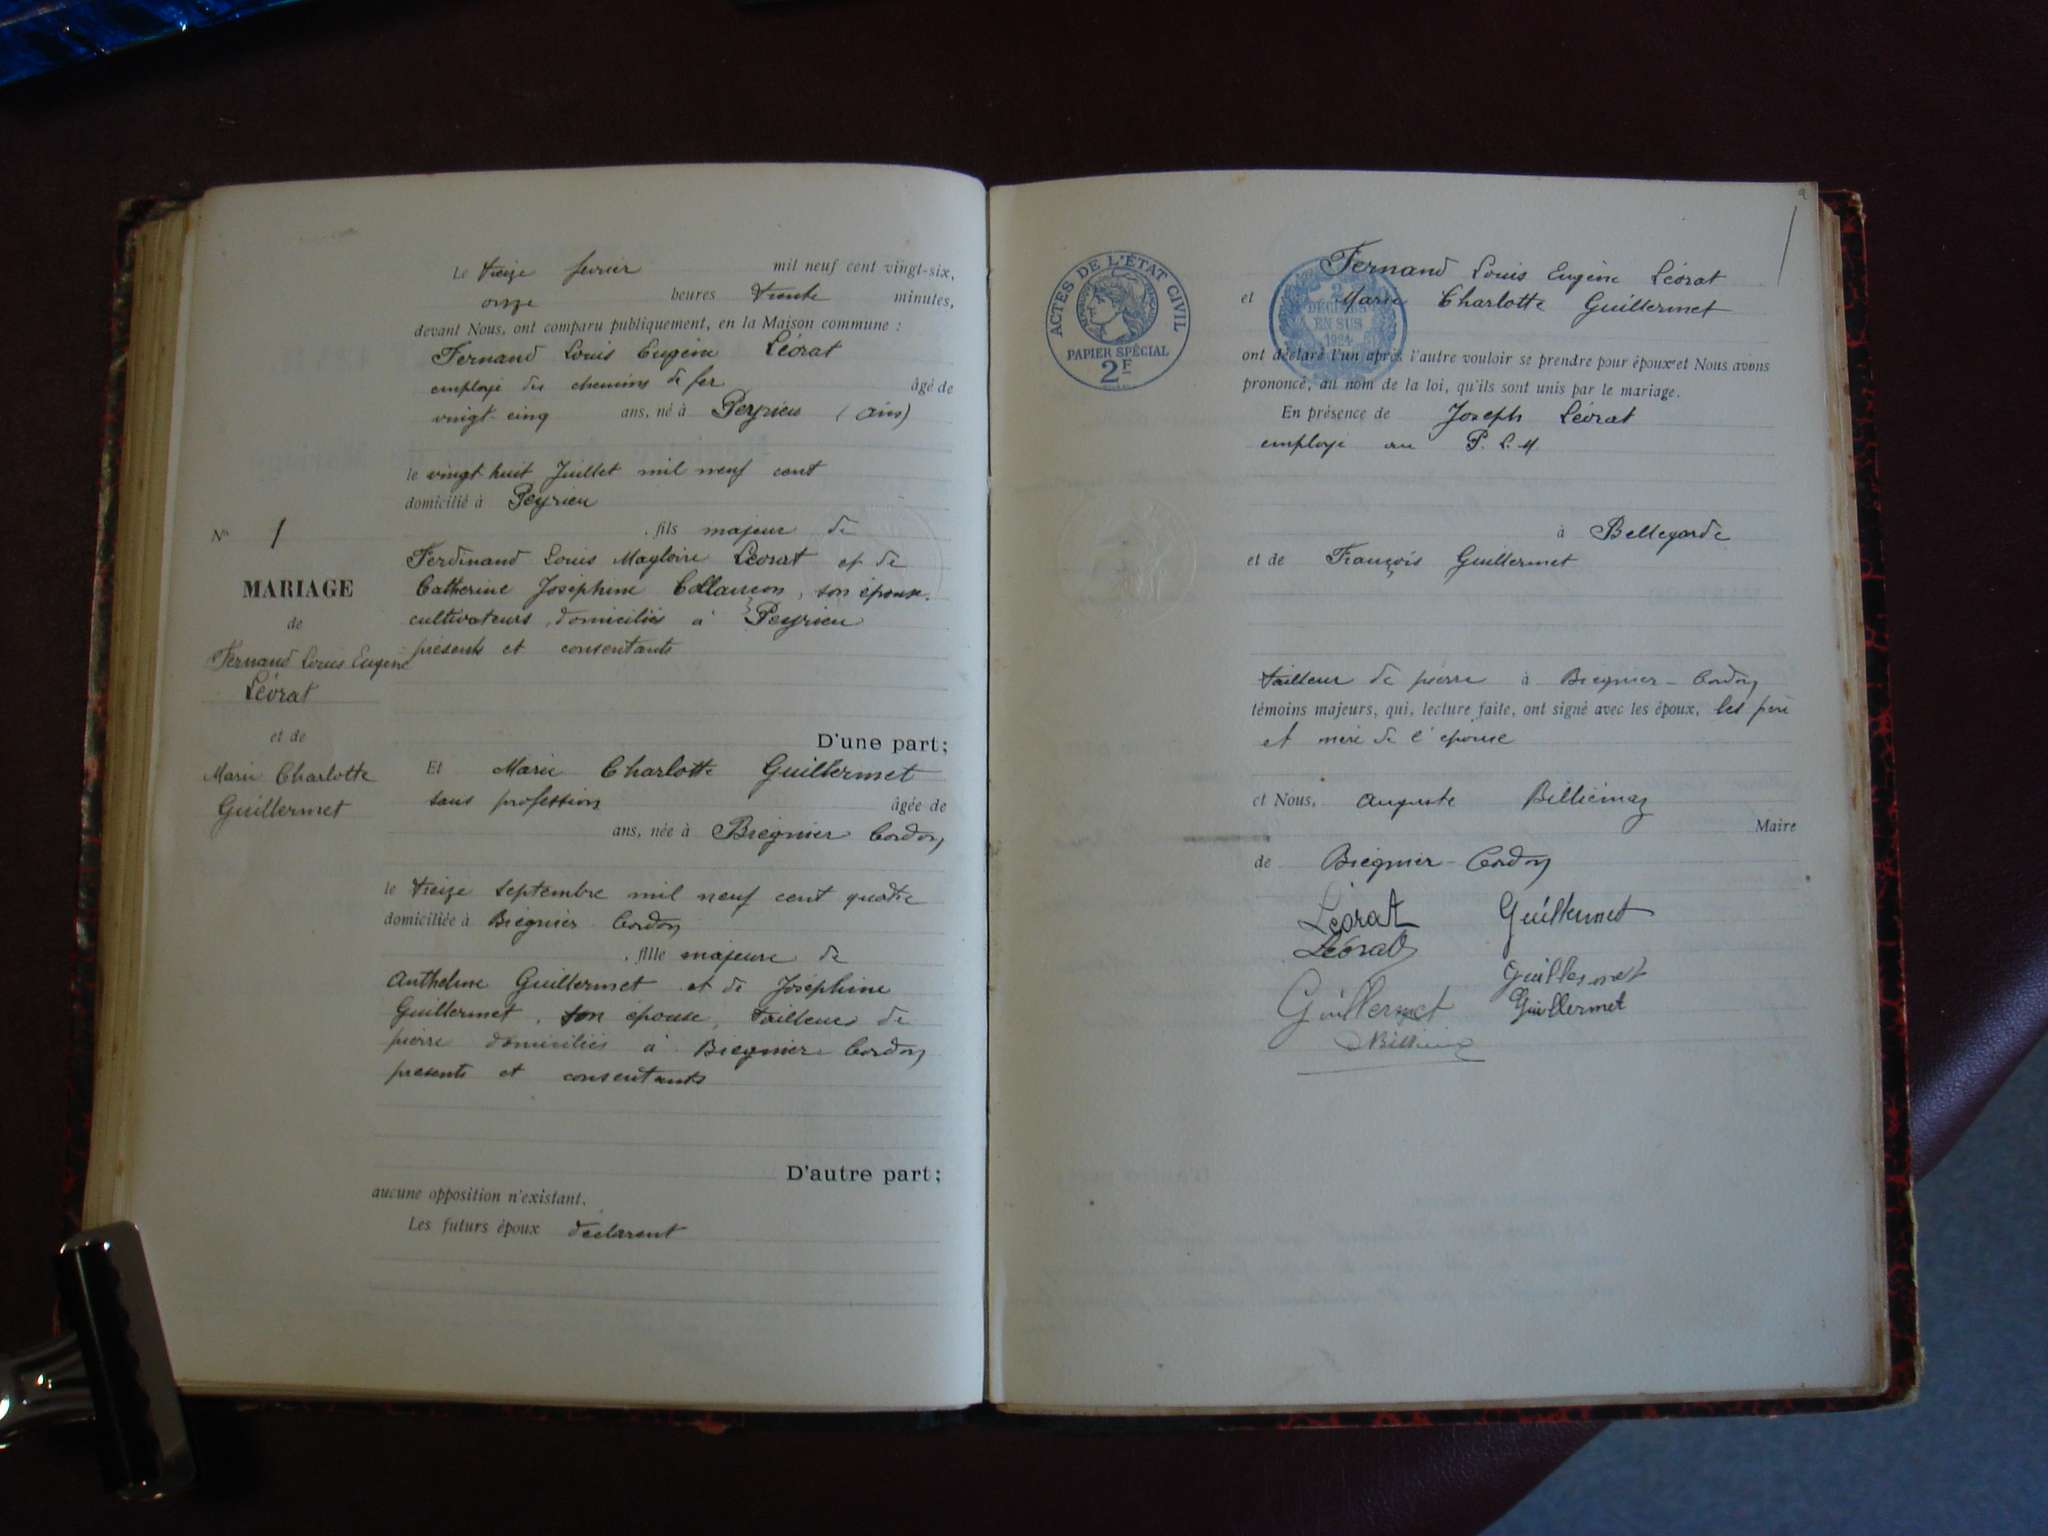 Le treize fevrier mil neuf cent vingt-six,
onze heures trente minutes,
devant Nous, ont comparu publiquement, en la Maison commune :
Fernand Louis Eugène Léorat
employé des chemins de fer âgé de
vingt-cinq ans, né à Peyrieu (Ain)
le vingt huit Juillet mil neuf cent
domicilié à Peyrieu
fils majeur de
Ferdinand Louis Magloire Léorat et de
Catherine Joséphine son épouse.
cultivateurs, domiciliés à Peyrieu
présents et consentants
D'une part;
N° 1
MARIAGE
de
Fernand Louis Eugène
Léorat
et de
Marie Charlotte
Guillermet
Et Marie Charlotte Guillermet
sans profession âgée de
ans, née à Brégnier Cordon
le treize septembre mil neuf cent quatre
domiciliée à Brégnier Cordon
fille majeure de
Anthelme Guillermet et de Joséphine
Guillermet, son épouse, tailleur de
pierre domiciliés à Bregnier Cordon
présents et consentants
D'autre part;
aucune opposition n'existant.
Les futurs époux déclarent
ACTES DE L'ÉTAT CIVIL
PAPIER SPÉCIAL
2F
2
DÉCIMES
EN SUS
1924
Fernand Louis Eugène Léorat
et Marie Charlotte Guillermet
ont déclaré l'un après l'autre vouloir se prendre pour époux et Nous avons
prononcé, au nom de la loi, qu'ils sont unis par le mariage.
En présence de Joseph Léorat
employé au P. L. M
à Bellegarde
et de François Guillermet
tailleur de pierre à Bregnier-Cordon
témoins majeurs, qui, lecture faite, ont signé avec les époux, les père
et mère de l'épouse
et Nous, Auguste Billiémaz
Maire
de Brégnier-Cordon
Léorat Guillermet
Léorat
Guillermet
Guillermet Guillermet